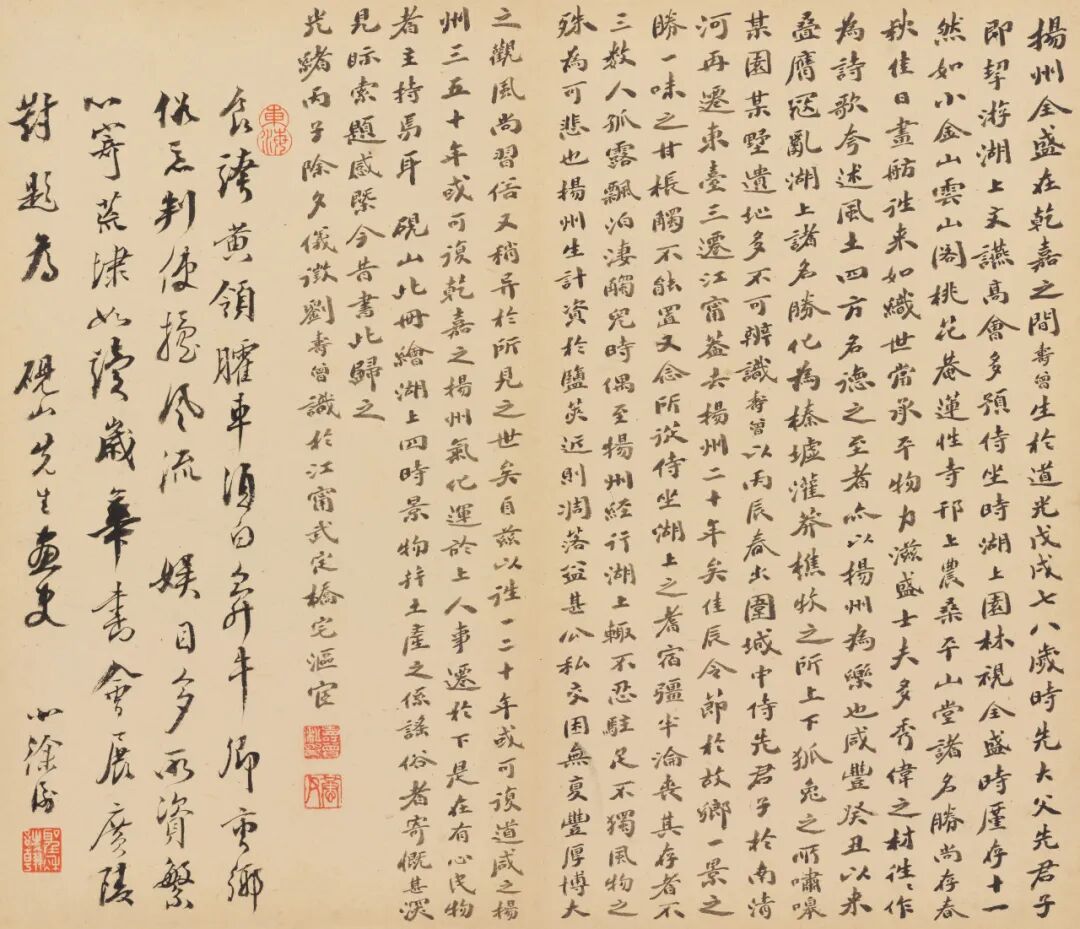 揚州全盛在乾嘉之間壽曾生於道光戊戌七八歲時先大父先君子
即挈游湖上文讌高會多預侍坐時湖上園林視全盛時廑存十一
然如小金山雲山閣桃花菴蓮性寺邗上農桑平山堂諸名勝尚存春
秋佳日畫舫往來如織世當承平物力滋盛士夫多秀偉之材往往作
為詩歌夸述風土四方名德之至者亦以揚州為樂也咸豐癸丑以來
疊膺寇亂湖上諸名勝化為榛墟灌莽樵牧之所上下狐兔之所嘯嗥
某園某墅遺址多不可辨識壽曾以丙辰春出圍城中侍先君子於南清
河再遷東臺三遷江甯蓋去揚州二十年矣佳辰令節於故鄉一景之
勝一味之甘棖觸不能置又念所從侍坐湖上之耆宿彊半淪喪其存者不
三數人孤露飄泊淒觸兒時偶至揚州經行湖上輒不忍駐足不獨風物之
殊為可悲也揚州生計資於鹽莢近則凋落益甚公私交困無夐豐厚博大
之觀風尚習俗又稍异於所見之世矣自茲以往一二十年或可復道咸之揚
州三五十年或可復乾嘉之揚州氣化運於上人事遷於下是在有心民物
者主持焉耳 硯山此冊繪湖上四時景物持土產之係謠俗者寄慨甚深
見眎索題感槩今昔書此歸之
光緒丙子除夕儀徵劉壽曾識於江甯武定橋宅漚宧
東海
衣誇黃領臛車須白弁牛鄉里鄉
俗忘判使擅風流 娛目多所資繁
心寄荒涑如續歲華書會展廣陵
對題為 硯山先生畫史 小徐溥